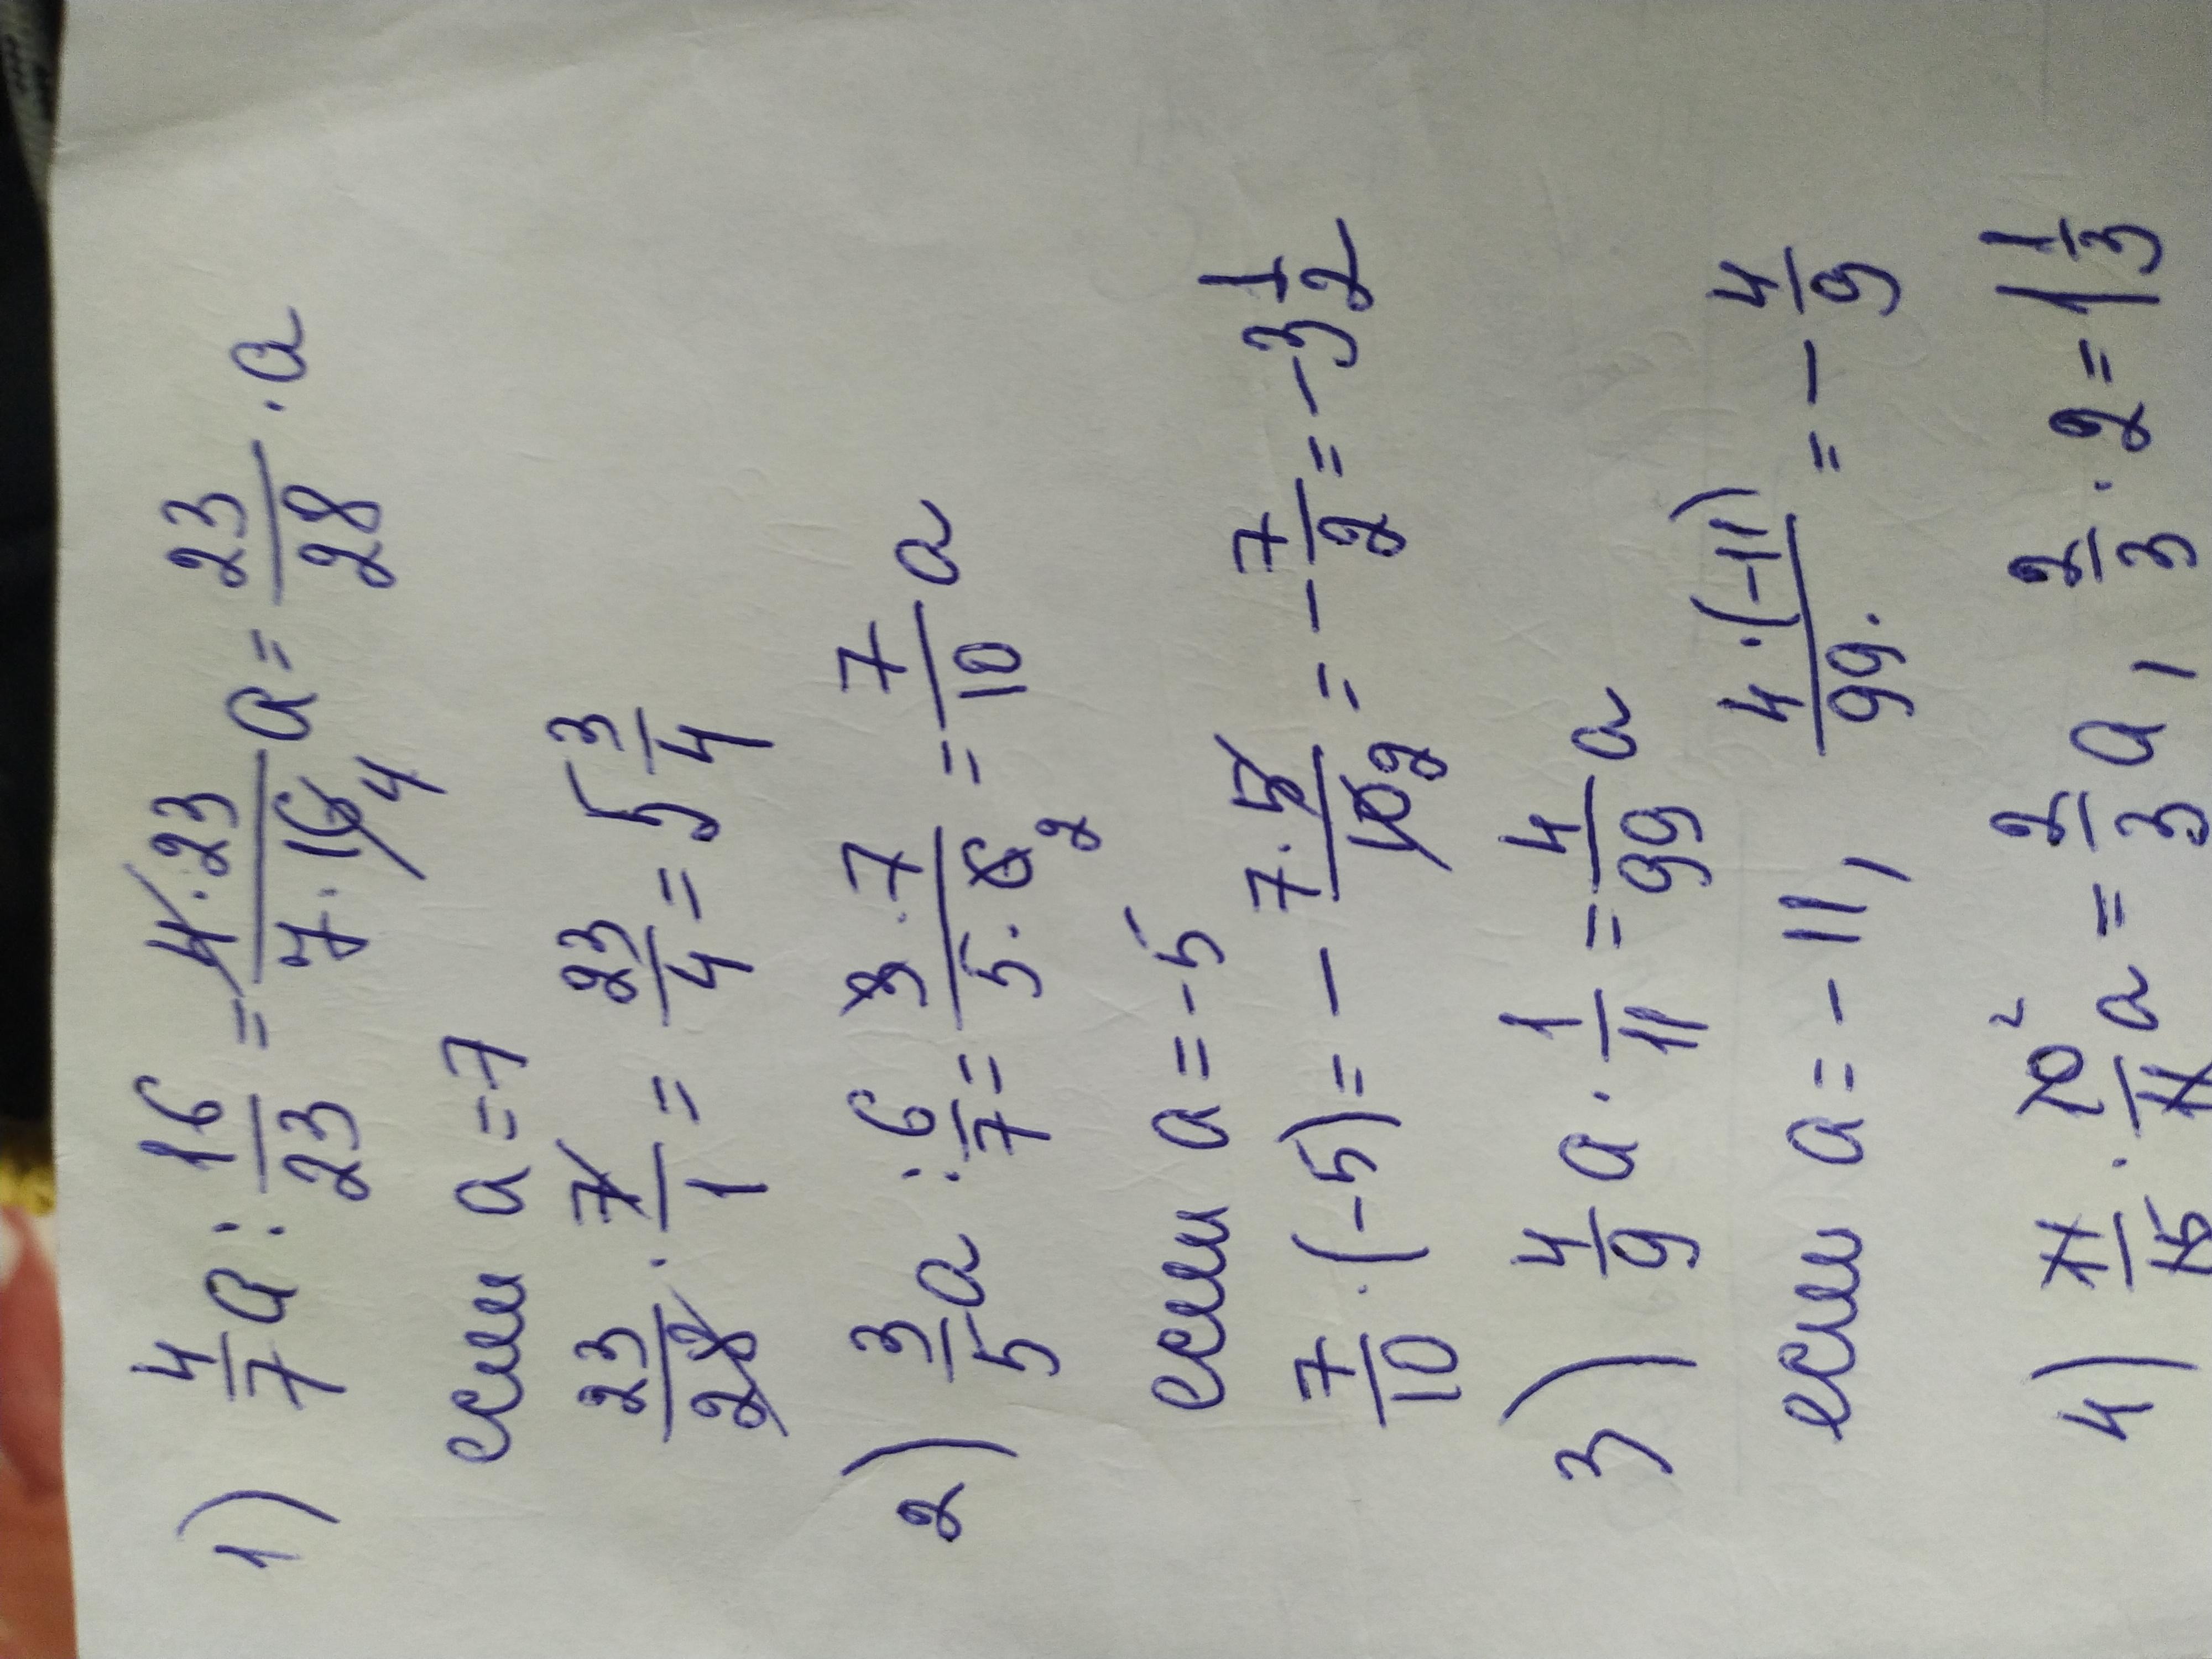 1) 4/7 a : 16/23 = 4·23/7·16 4 a = 23/28 · a
если a = 7
23/28 · 7/1 = 23/4 = 5 3/4
2) 3/5 a : 6/7 = 3·7/5·6 2 = 7/10 a
если a = -5
7/10 · (-5) = - 7·5/10 2 = - 7/2 = -3 1/2
3) 4/9 a · 1/11 = 4/99 a
если a = -11, 4·(-11)/99. = - 4/9
4) 11/15 · 10 2/11 a = 2/3 a, 2/3 · 2 = 1 1/3